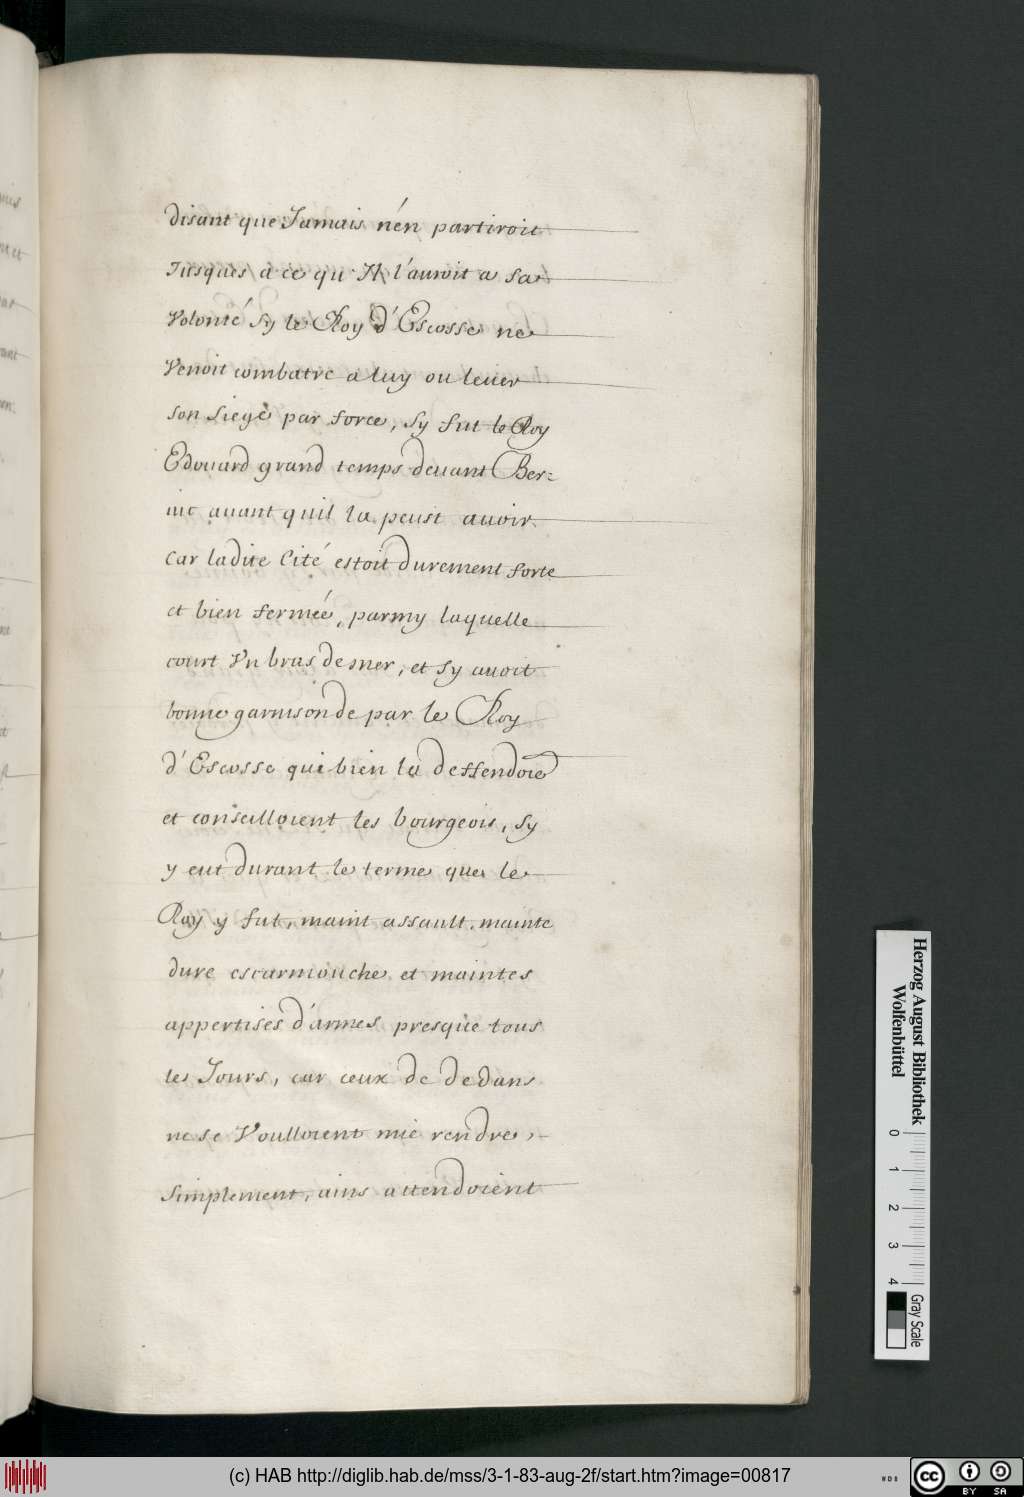 disant que Jamais n'én partiroit
Jusques a ce qu'Il l'auroit a sa
Volonté sy le Roy d'Escosse ne
Venoit combatre a luy ou leuer
son siege par force, sy fut le Roy
Edouard grand temps deuant Ber-
uic auant quil la peust auoir.
Car ladite Cité estoit durement forte
et bien fermée, parmy laquelle
court Vn bras de mer, et sy auoit
bonne garnison de par le Roy
d'Escosse qui bien la deffendoie
et conseilloient les bourgeois, sy
y eut durant le terme que le
Roy y fut, maint assault, mainte
dure escarmouche et maintes
appertises d'armes presque tous
les Jours, car ceux de dedans
ne se Voulloient mie rendre,
simplement, ains attendoient
Herzog August Bibliothek
Wolfenbüttel
0 1 2 3 4
Gray Scale
(c) HAB http://diglib.hab.de/mss/3-1-83-aug-2f/start.htm?image=00817
WDB
cc BY SA